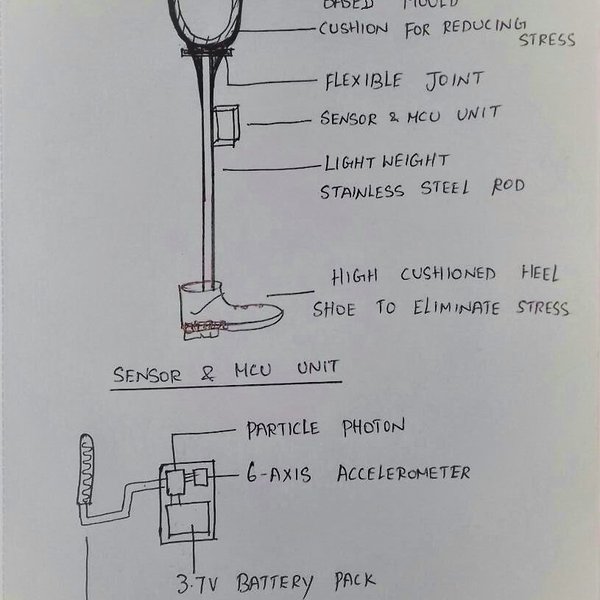 BASED MOULD
CUSHION FOR REDUCING
STRESS
FLEXIBLE JOINT
SENSOR & MCU UNIT
LIGHT WEIGHT
STAINLESS STEEL ROD
HIGH CUSHIONED HEEL
SHOE TO ELIMINATE STRESS
SENSOR & MCU UNIT
PARTICLE PHOTON
6-AXIS ACCELEROMETER
3.7V BATTERY PACK